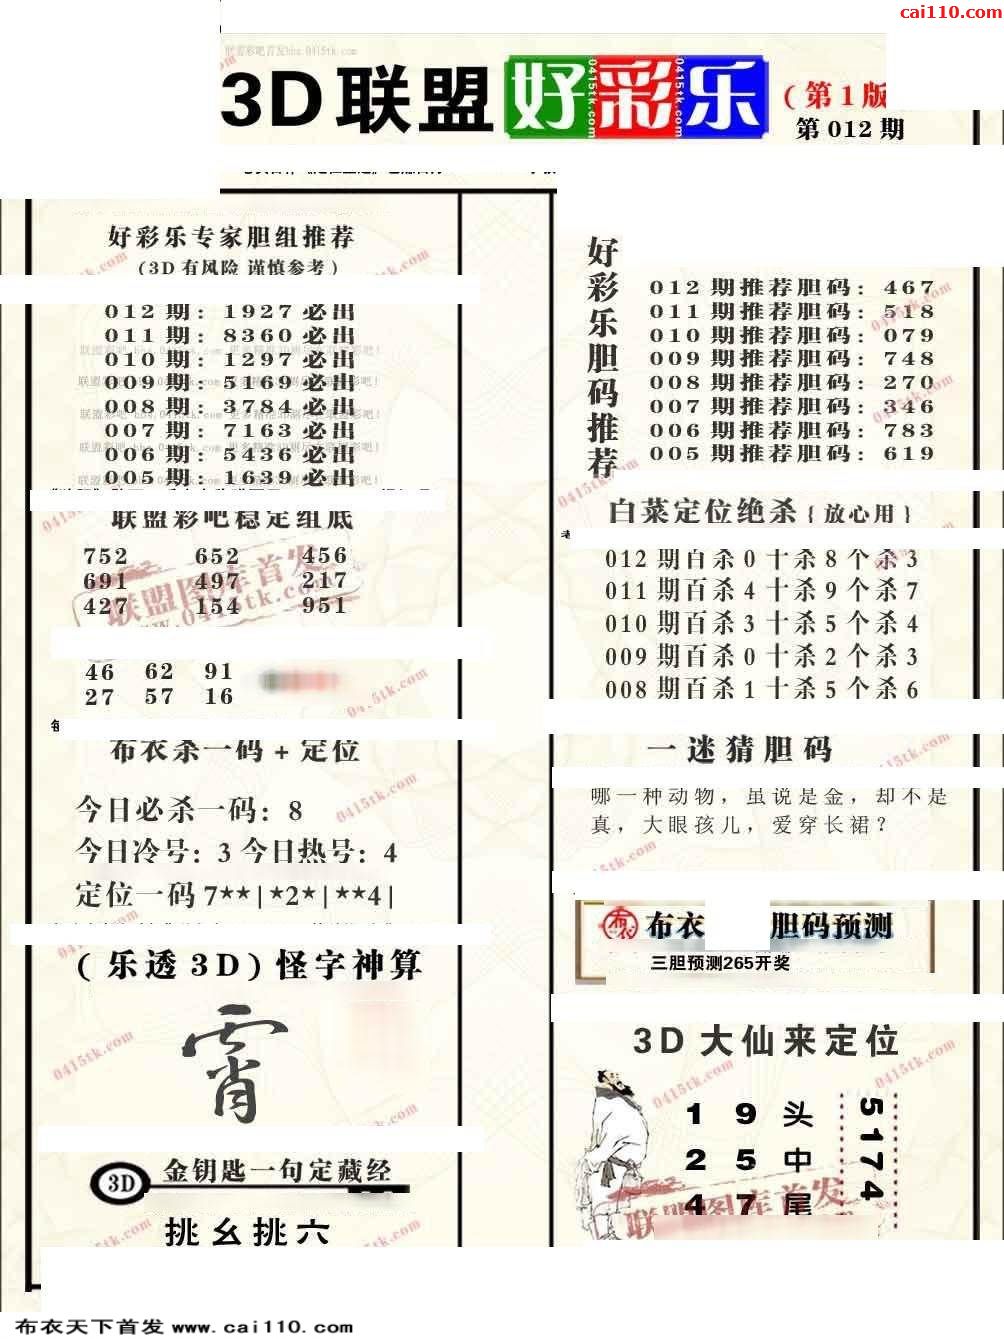 cai110.com
3D联盟好彩乐
(第1版
第012期
好彩乐专家胆组推荐
(3D有风险 谨慎参考)
012期：1927必出
011期：8360必出
010期：1297必出
009期：5169必出
008期：3784必出
007期：7163必出
006期：5436必出
005期：1639必出
联盟彩吧稳定组底
752 652 456
691 497 217
427 154 951
46 62 91
27 57 16
布衣杀一码+定位
今日必杀一码：8
今日冷号：3 今日热号：4
定位一码 7**|*2*|**4|
(乐透3D)怪字神算
霄
3D 金钥匙一句定藏经
挑幺挑六
好彩乐胆码推荐
012期推荐胆码：467
011期推荐胆码：518
010期推荐胆码：079
009期推荐胆码：748
008期推荐胆码：270
007期推荐胆码：346
006期推荐胆码：783
005期推荐胆码：619
白菜定位绝杀{放心用}
012期百杀0十杀8个杀3
011期百杀4十杀9个杀7
010期百杀3十杀5个杀4
009期百杀0十杀2个杀3
008期百杀1十杀5个杀6
一迷猜胆码
哪一种动物，虽说是金，却不是
真，大眼孩儿，爱穿长裙？
布衣 布衣 胆码预测
三胆预测265开奖
3D大仙来定位
1 9 头
2 5 中
4 7 尾
5174
联盟图库首发
0415tk.com
布衣天下首发 www.cai110.com